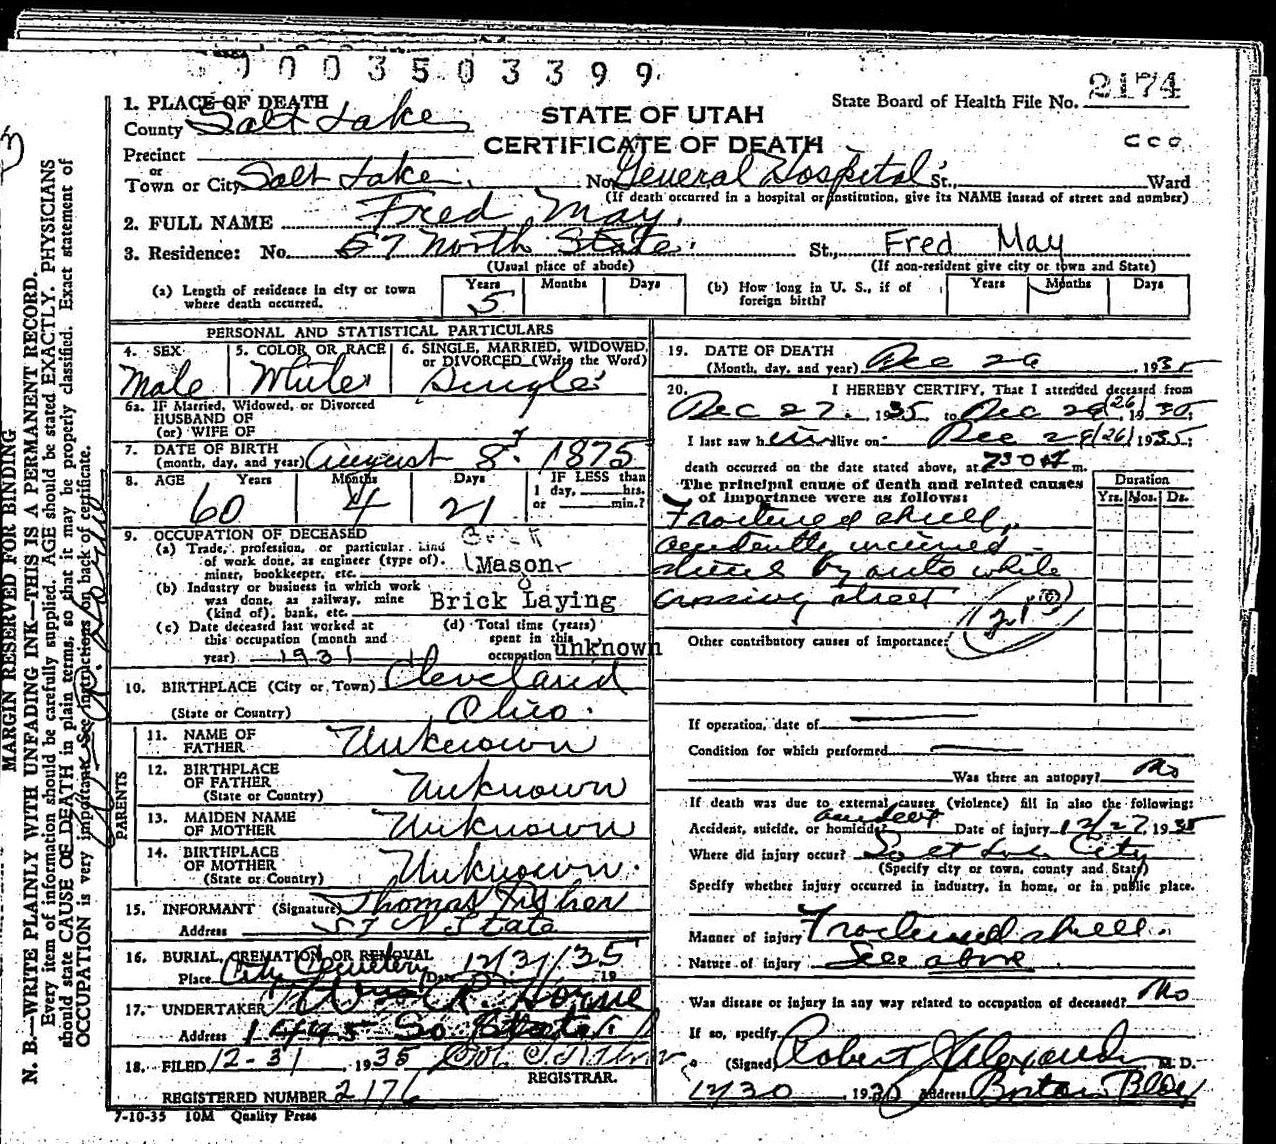 1003503399
2174
State Board of Health File No.
STATE OF UTAH
CERTIFICATE OF DEATH
1. PLACE OF DEATH
County Salt Lake
Precinct
or
Town or City Salt Lake No. General Hospital St., Ward
(If death occurred in a hospital or institution, give its NAME instead of street and number)
2. FULL NAME Fred May
3. Residence: No. 57 North State St., Fred May
(Usual place of abode) (If non-resident give city or town and State)
(a) Length of residence in city or town where death occurred. Years 5 Months Days
(b) How long in U. S., if of foreign birth? Years Months Days
PERSONAL AND STATISTICAL PARTICULARS
4. SEX Male
5. COLOR OR RACE White
6. SINGLE, MARRIED, WIDOWED, or DIVORCED (Write the Word) Single
6a. IF Married, Widowed, or Divorced
HUSBAND OF
(or) WIFE OF
7. DATE OF BIRTH
(month, day, and year) August 8 1875
8. AGE Years 60 Months 4 Days 21 IF LESS than
1 day, hrs.
or min.?
9. OCCUPATION OF DECEASED
(a) Trade, profession, or particular kind
of work done, as engineer (type of),
miner, bookkeeper, etc. Mason
(b) Industry or business in which work
was done, as railway, mine
(kind of), bank, etc. Brick Laying
(c) Date deceased last worked at
this occupation (month and
year) 1931
(d) Total time (years)
spent in this
occupation unknown
10. BIRTHPLACE (City or Town) Cleveland
(State or Country) Ohio.
PARENTS
11. NAME OF
FATHER Unknown
12. BIRTHPLACE
OF FATHER
(State or Country) Unknown
13. MAIDEN NAME
OF MOTHER Unknown
14. BIRTHPLACE
OF MOTHER
(State or Country) Unknown.
15. INFORMANT (Signature) Thomas Fisher
Address 57 N State
16. BURIAL, CREMATION, OR REMOVAL
Place City Cemetery Date 12/31/35 19
17. UNDERTAKER
Address So State
18. FILED 12-31 1935
REGISTRAR.
REGISTERED NUMBER 2176
7-10-35 10M Quality Press
19. DATE OF DEATH
(Month, day, and year) Dec 26 1935
20. I HEREBY CERTIFY, That I attended deceased from
Dec 27. 1935 to Dec (26) 1935;
I last saw him alive on Dec (26) 1935;
death occurred on the date stated above, at 730 m.
The principal cause of death and related causes
of importance were as follows:
Duration
Yrs. Mos. Ds.
Fractured skull,
accidently incurred
struck by auto while
crossing street
Other contributory causes of importance:
If operation, date of
Condition for which performed
Was there an autopsy? No
If death was due to external causes (violence) fill in also the following:
Accident, suicide, or homicide? accident Date of injury 12/27, 1935
Where did injury occur? Salt Lake City
(Specify city or town, county and State)
Specify whether injury occurred in industry, in home, or in public place.
Manner of injury Fractured skull.
Nature of injury See above
Was disease or injury in any way related to occupation of deceased? No
If so, specify
(Signed) Robert J Alexander M. D.
12/30 1935 Address Boston Bldg
MARGIN RESERVED FOR BINDING
N. B.—WRITE PLAINLY WITH UNFADING INK—THIS IS A PERMANENT RECORD.
Every item of information should be carefully supplied. AGE should be stated EXACTLY. PHYSICIANS
should state CAUSE OF DEATH in plain terms, so that it may be properly classified. Exact statement of
OCCUPATION is very important. See instructions on back of certificate.